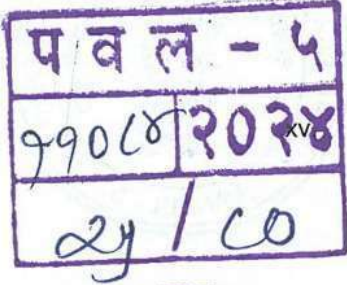 प व ल - ५
११०८४ २०२४ xv
२५ / ८०